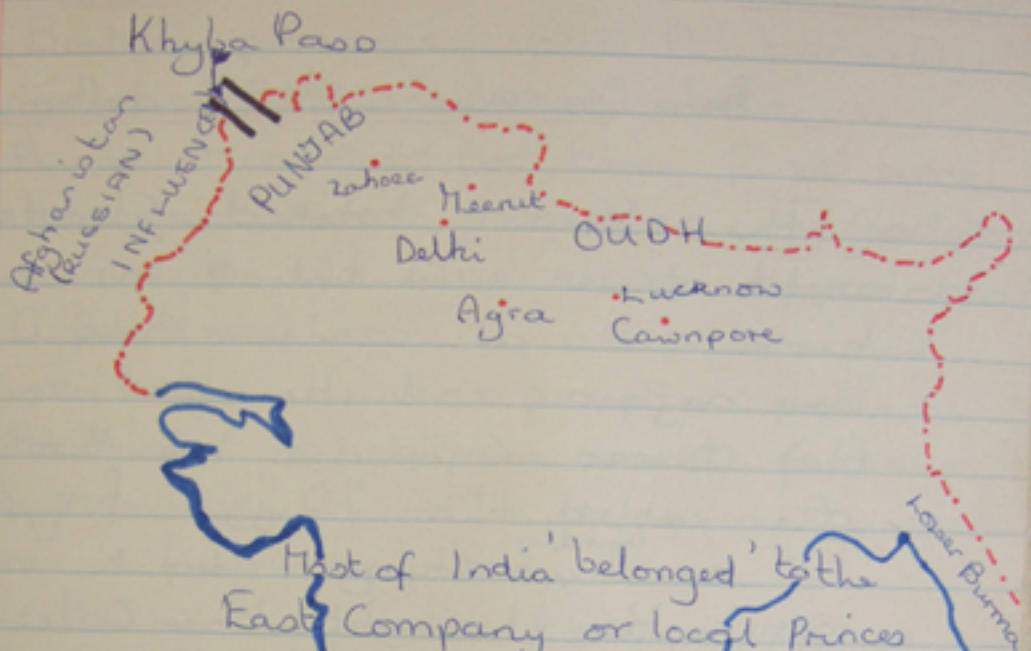 Khyba Pass
Afghanistan
(RUSSIAN)
INFLUENCE
PUNJAB
Lahore
Meerut
Delhi
OUDH
Agra
Lucknow
Cawnpore
Lower Burma
Most of India 'belonged' to the
East Company or local Princes